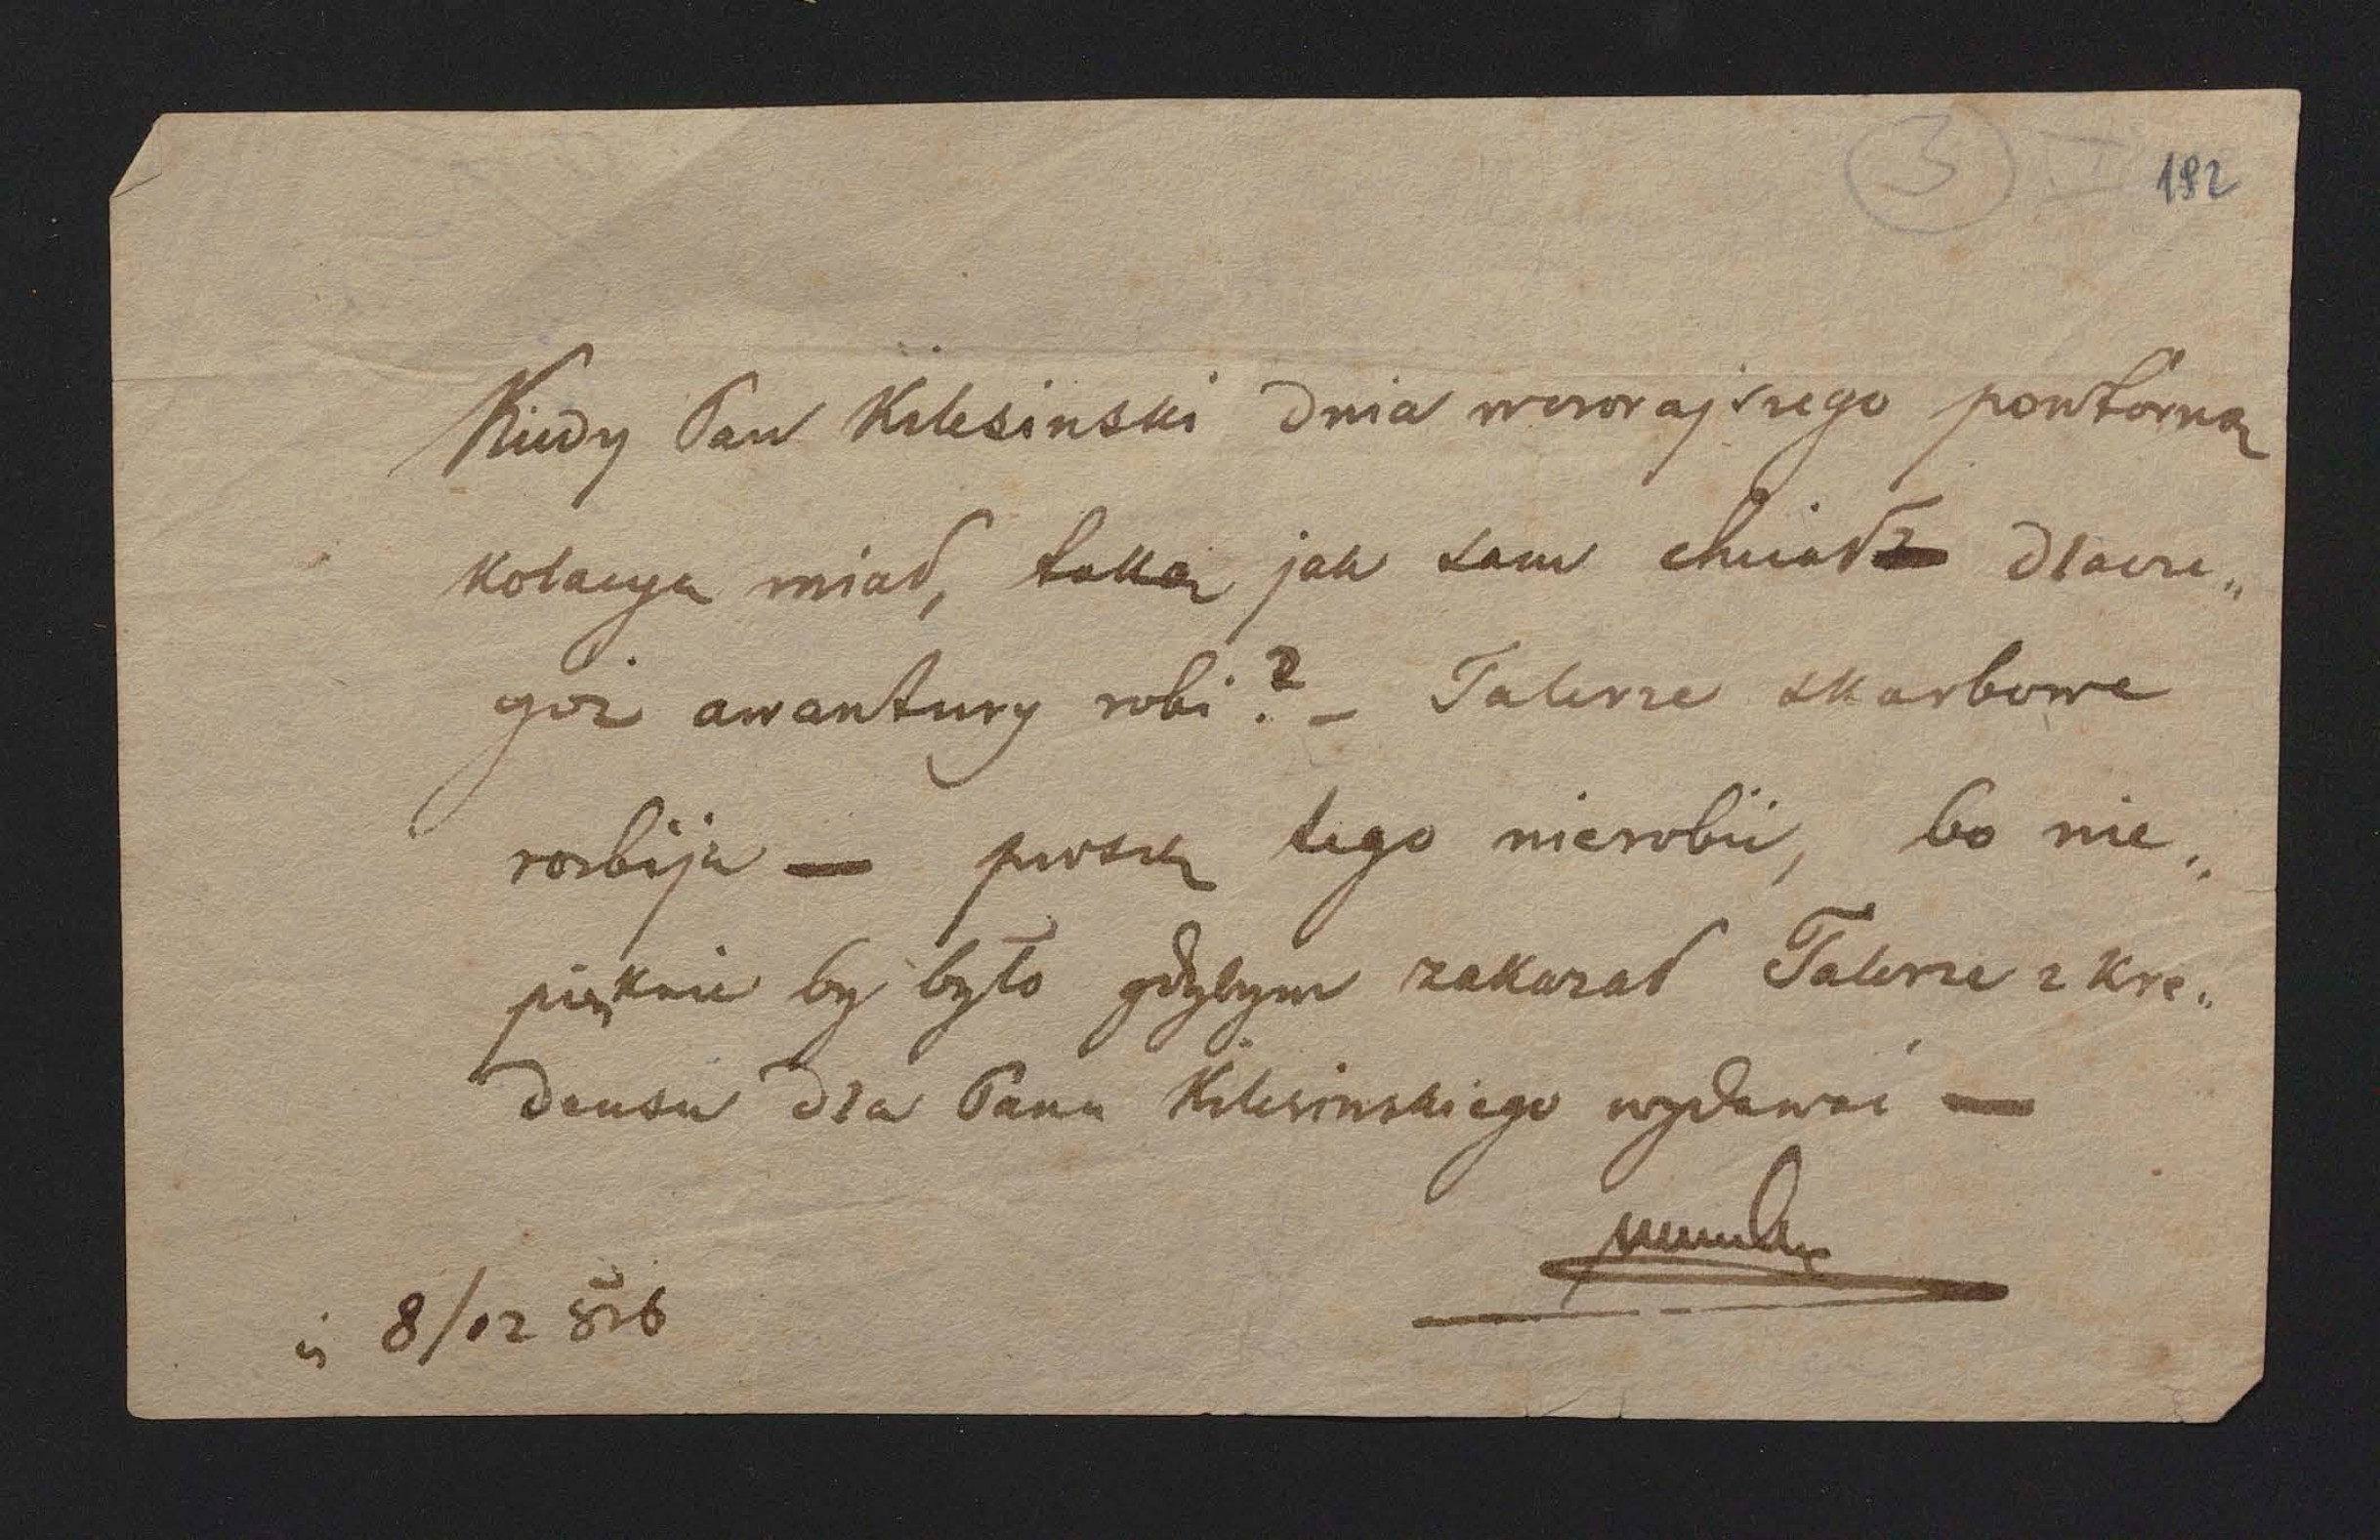 3 I 192
Kiedy Pan Kilesinski dnia wczorajszego powtórną
kolacyą miał, taką jak sam chciał dlacze„
goż awantury robi? – Talerze skarbowe
rozbija — proszę tego nierobić, bo nie„
pięknie by było gdybym zakazał Talerze z Kre„
densu dla Pana Kilesinskiego wydawać —
8/12 826